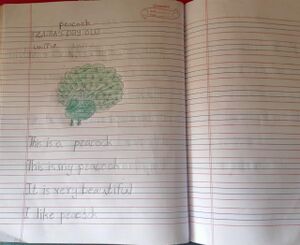 peacock
This is a peacock
This is my peacock
It is very beautiful
I like peacock